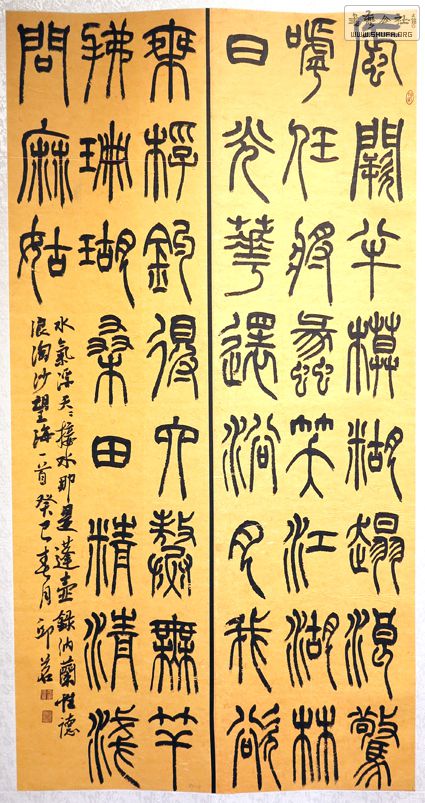 蜃闕半模糊蹋浪驚
嘑任將蠡笑江湖林
日光華還浴月我欲
乘桴釣得六鰲無竿
拂珊瑚桑田精清淺
問麻姑
水氣浮天〻接水那是蓬壺錄納蘭性德
浪淘沙望海一首癸巳春月邱
WWW.SHUFA.ORG